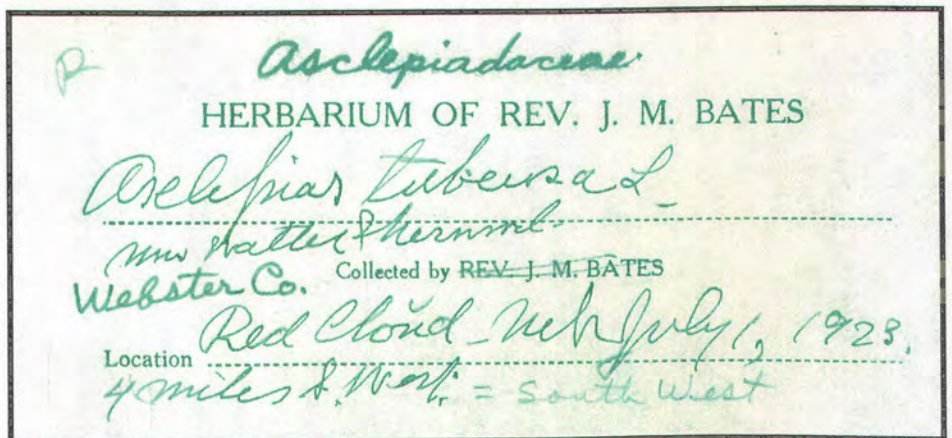 Asclepiadaceae
HERBARIUM OF REV. J. M. BATES
Asclepias tuberosa L.
Mrs Walter Sherwood
Collected by REV. J. M. BATES
Webster Co.
Red Cloud - Neb July 1, 1923.
Location
4 miles S. West. = South West